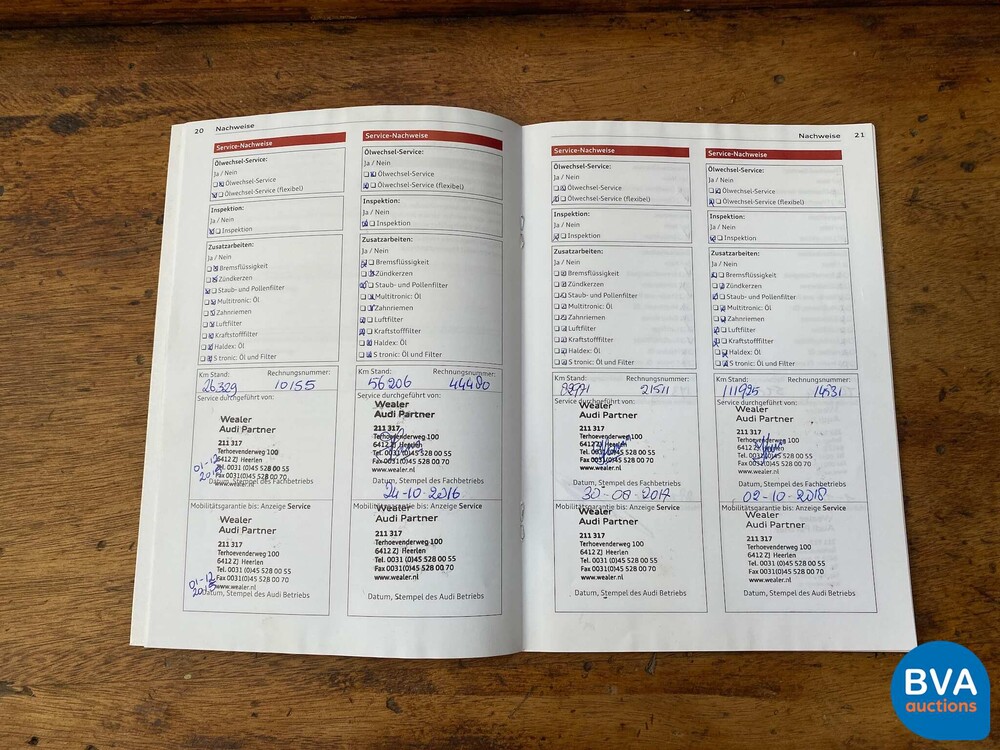 20 Nachweise
Service-Nachweise
Ölwechsel-Service:
Ja / Nein
Ölwechsel-Service
Ölwechsel-Service (flexibel)
Inspektion:
Ja / Nein
Inspektion
Zusatzarbeiten:
Ja / Nein
Bremsflüssigkeit
Zündkerzen
Staub- und Pollenfilter
Multitronic: Öl
Zahnriemen
Luftfilter
Kraftstofffilter
Haldex: Öl
S tronic: Öl und Filter
Km Stand: Rechnungsnummer:
26329 10155
Service durchgeführt von:
Wealer
Audi Partner
211 317
Terhoevenderweg 100
6412 ZJ Heerlen
Tel. 0031 (0)45 528 00 55
Fax 0031(0)45 528 00 70
www.wealer.nl
01-12
Datum, Stempel des Fachbetriebs
Mobilitätsgarantie bis: Anzeige Service
Wealer
Audi Partner
211 317
Terhoevenderweg 100
6412 ZJ Heerlen
Tel. 0031 (0)45 528 00 55
Fax 0031(0)45 528 00 70
www.wealer.nl
01-12
Datum, Stempel des Audi Betriebs
Service-Nachweise
Ölwechsel-Service:
Ja / Nein
Ölwechsel-Service
Ölwechsel-Service (flexibel)
Inspektion:
Ja / Nein
Inspektion
Zusatzarbeiten:
Ja / Nein
Bremsflüssigkeit
Zündkerzen
Staub- und Pollenfilter
Multitronic: Öl
Zahnriemen
Luftfilter
Kraftstofffilter
Haldex: Öl
S tronic: Öl und Filter
Km Stand: Rechnungsnummer:
56206 44480
Service durchgeführt von:
Wealer
Audi Partner
211 317
Terhoevenderweg 100
6412 ZJ Heerlen
Tel. 0031 (0)45 528 00 55
Fax 0031(0)45 528 00 70
www.wealer.nl
Datum, Stempel des Fachbetriebs
24-10-2016
Mobilitätsgarantie bis: Anzeige Service
Wealer
Audi Partner
211 317
Terhoevenderweg 100
6412 ZJ Heerlen
Tel. 0031 (0)45 528 00 55
Fax 0031(0)45 528 00 70
www.wealer.nl
Datum, Stempel des Audi Betriebs
Nachweise 21
Service-Nachweise
Ölwechsel-Service:
Ja / Nein
Ölwechsel-Service
Ölwechsel-Service (flexibel)
Inspektion:
Ja / Nein
Inspektion
Zusatzarbeiten:
Ja / Nein
Bremsflüssigkeit
Zündkerzen
Staub- und Pollenfilter
Multitronic: Öl
Zahnriemen
Luftfilter
Kraftstofffilter
Haldex: Öl
S tronic: Öl und Filter
Km Stand: Rechnungsnummer:
Service durchgeführt von:
Wealer
Audi Partner
211 317
Terhoevenderweg 100
6412 ZJ Heerlen
Tel. 0031 (0)45 528 00 55
Fax 0031(0)45 528 00 70
www.wealer.nl
Datum, Stempel des Fachbetriebs
30-08-2017
Mobilitätsgarantie bis: Anzeige Service
Wealer
Audi Partner
211 317
Terhoevenderweg 100
6412 ZJ Heerlen
Tel. 0031 (0)45 528 00 55
Fax 0031(0)45 528 00 70
www.wealer.nl
Datum, Stempel des Audi Betriebs
Service-Nachweise
Ölwechsel-Service:
Ja / Nein
Ölwechsel-Service
Ölwechsel-Service (flexibel)
Inspektion:
Ja / Nein
Inspektion
Zusatzarbeiten:
Ja / Nein
Bremsflüssigkeit
Zündkerzen
Staub- und Pollenfilter
Multitronic: Öl
Zahnriemen
Luftfilter
Kraftstofffilter
Haldex: Öl
S tronic: Öl und Filter
Km Stand: Rechnungsnummer:
111925 14531
Service durchgeführt von:
Wealer
Audi Partner
211 317
Terhoevenderweg 100
6412 ZJ Heerlen
Tel. 0031 (0)45 528 00 55
Fax 0031(0)45 528 00 70
www.wealer.nl
Datum, Stempel des Fachbetriebs
02-10-2018
Mobilitätsgarantie bis: Anzeige Service
Wealer
Audi Partner
211 317
Terhoevenderweg 100
6412 ZJ Heerlen
Tel. 0031 (0)45 528 00 55
Fax 0031(0)45 528 00 70
www.wealer.nl
Datum, Stempel des Audi Betriebs
BVA
auctions